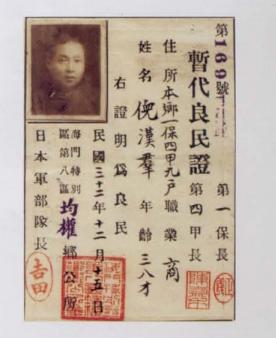 第1699號
暫代良民證
第一保長
第四甲長
住所本鄉一保四甲九戶職業 商
姓名 倪漢羣 年齡 三八才
右證明為良民
民國三十二年十二月十五日
海門特別
區第八區均權鄉公所
日本軍部隊長
吉田